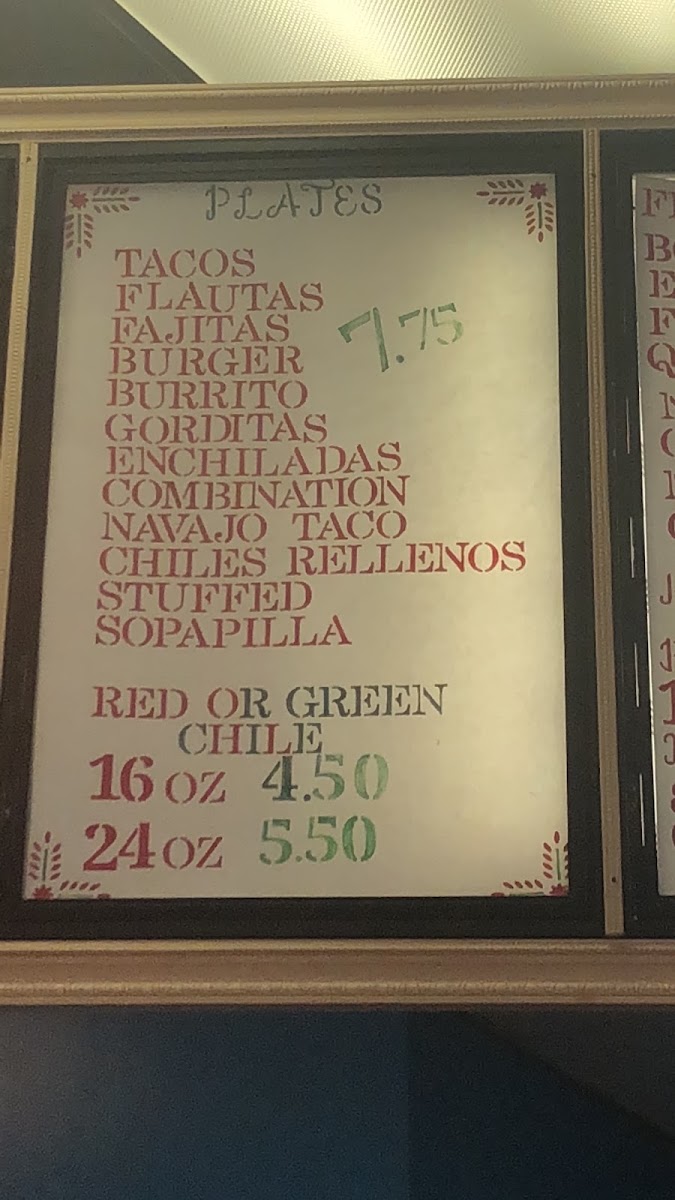 PLATES
TACOS
FLAUTAS
FAJITAS
7.75
BURGER
BURRITO
GORDITAS
ENCHILADAS
COMBINATION
NAVAJO TACO
CHILES RELLENOS
STUFFED
SOPAPILLA
RED OR GREEN
CHILE
16 OZ 4.50
24 OZ 5.50